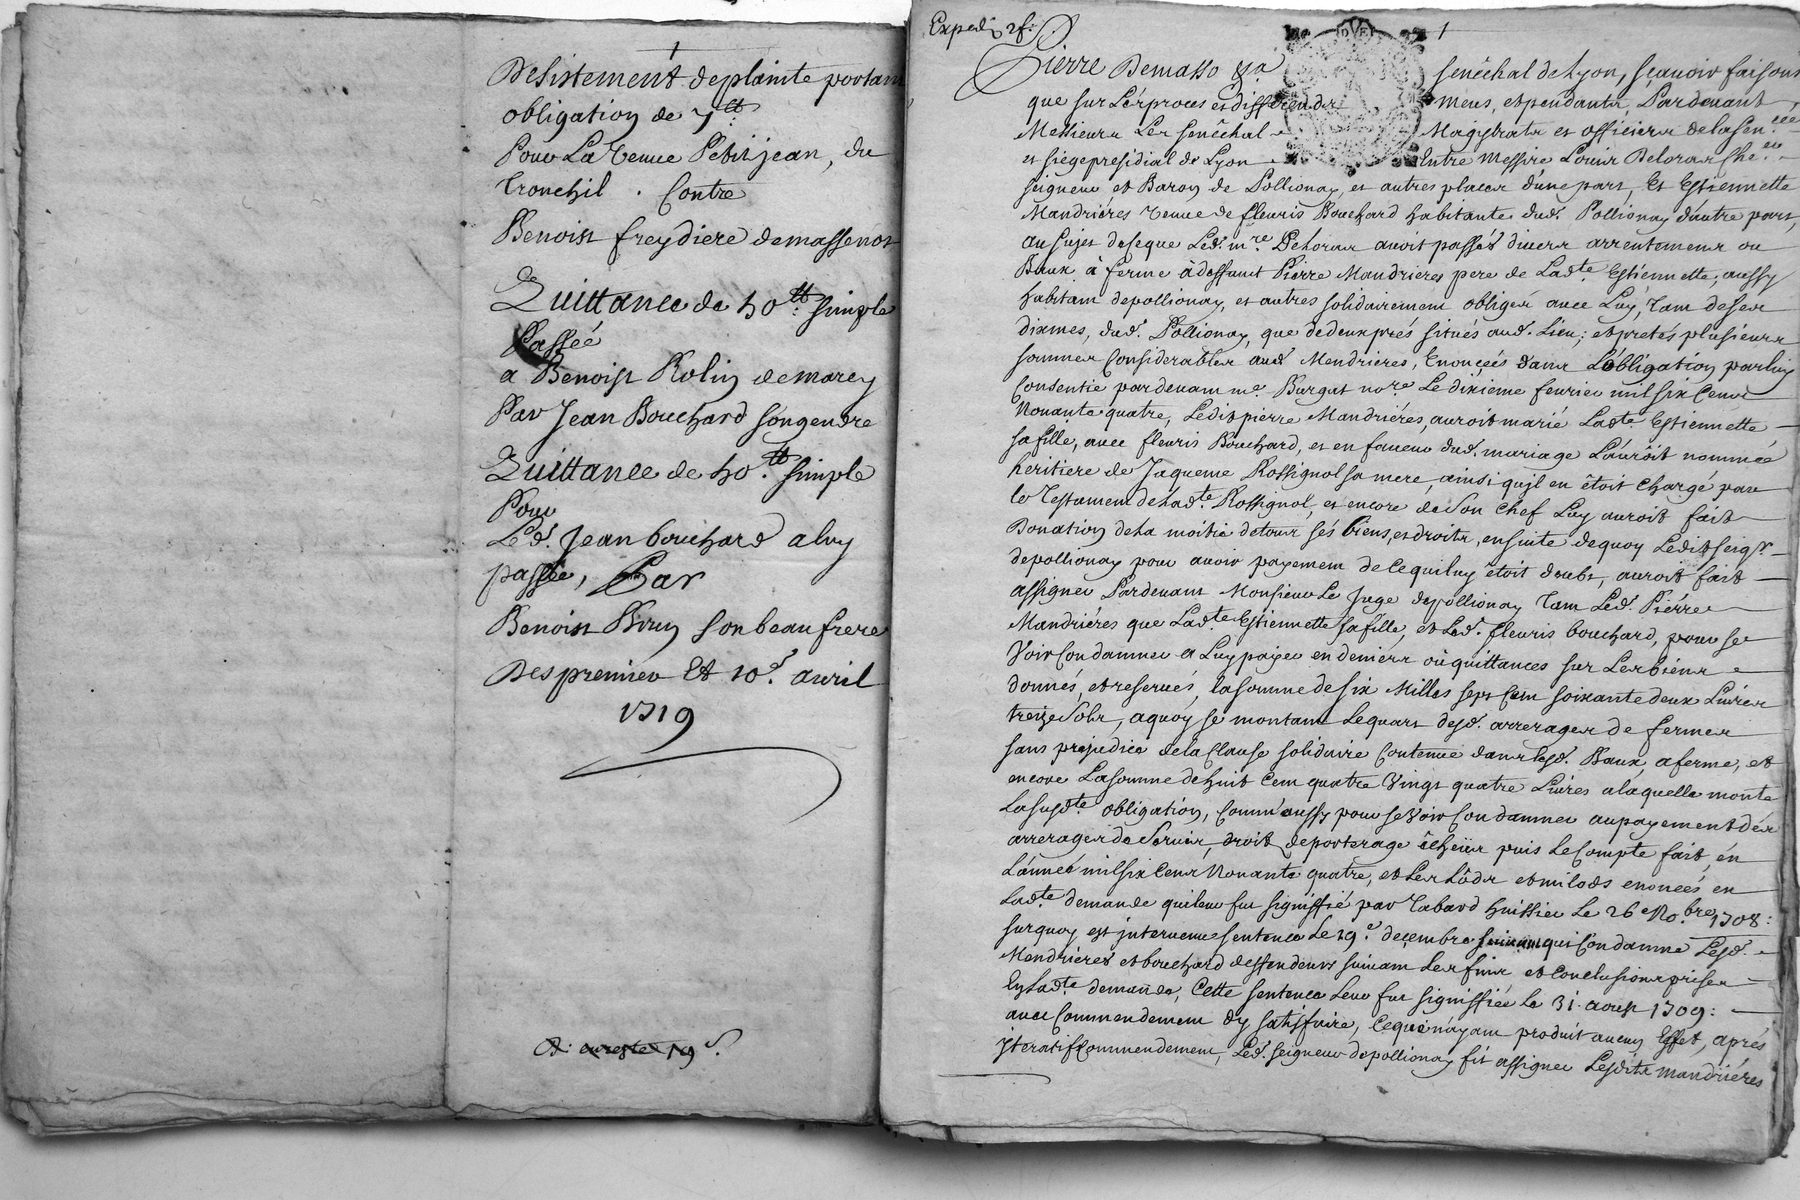 1
Desistement deplainte portant
obligation de 7ᵗᵗ
Pour La veuve Petitjean, du
tronchil . Contre
Benoist freydiere demassenot
Quittance de 40ᵗᵗ simple
Passée
a Benoist Rolin demarcy
Par Jean Bouchard songendre
Quittance de 40ᵗᵗ simple
Pour
Led. Jean bouchard aluy
passée, Par
Benoist son beaufrere
Des premier Et 10ᵉ avril
1719
Expedié
1
Pierre Demasso &ª senéchal de Lyon, sçavoir faisons
que sur Les procés et differends meus, et pendants Pardevant
Messieurs Les senéchal Magistrats et officiers delasen.ᶜᵉᵉ
et siege presidial de Lyon Entre Messire Louis Deloras che.ᵉʳ
seigneur et Baron de Pollionay, et autres places d'une part, Et Estiennette
Mandriéres veuve de fleuris Bouchard habitante dud. Pollionay d'autre part,
au sujet deseque Led. mʳᵉ Deloras avoit passés divers arrentemens ou
Baux à ferme à deffunt Pierre Mandrieres pere de Ladᵗᵉ Estiennette, aussy
habitant depollionay, et autres solidairement obligés avec Luy, tant deses
dixmes, dud. Pollionay, que dedeux prés situés aud. Lieu; et pretés plusieurs
sommes Considerables aud. Mendrieres, Enoncées dans L'obligation parluy
Consentie pardevant mᵉ Burgat noʳᵉ Le dixieme fevrier mil six Cens
Nonante quatre, Ledit pierre Mandriéres, auroit marié Ladᵗᵉ Estiennette
sa fille, avec fleuris Bouchard, et en faveur dud. mariage L'auroit nommée
heritiere de Jaqueme Rossignol sa mere, ainsi qu'il en étoit chargé par
le Testament de Ladᵗᵉ Rossignol, et encore de Son Chef Luy auroit fait
Donation de la moitié detous ses biens, et droits, ensuite dequoy Ledit seigʳ
depollionay pour avoir payement de Cequiluy étoit deubt, auroit fait
assigner Pardevant Monsieur Le Juge depollionay tant Led. Pierre
Mandriéres que Ladᵗᵉ Estiennette sa fille, et Led. fleuris bouchard, pour se
Voir Condamner a Luy payer en deniers ou quittances sur Les biens
donnés, et reservés, la somme de six Milles sept Cent soixante deux Livres
treize Sols, aquoy se montant Lequart desd. arrerages de fermes
sans prejudice de la Clause solidaire Contenue dans Lesd. Baux, a ferme, et
encore La somme de huit Cent quatre Vingt quatre Livres a laquelle monte
La susdᵗᵉ obligation, Comm'aussy pour se Voir Condamner aupayement des
arrerages de Servis, droit deporterage écheus puis Le Compte fait en
L'année mil six Cens Nonante quatre, et Les Lods et milods enoncés en
Ladᵗᵉ demande quileur fut signiffié par Tabard huissier Le 26 No.ᵇʳᵉ 1708:
surquoy est intervenue sentence Le 19ᵉ decembre suivant qui Condamne Lesd.
Mendrieres et bouchard deffendeurs suivant Les fins et Conclusions prises
En Ladᵗᵉ demande, Cette sentence Leur fut signiffiée Le 31. aoust 1709:
avec Commendement d'y satisfaire, Cequi n'ayant produit aucun Effet, aprés
iteratif Commendement, Led. seigneur depollionay fit assigner Lesdits mandriéres